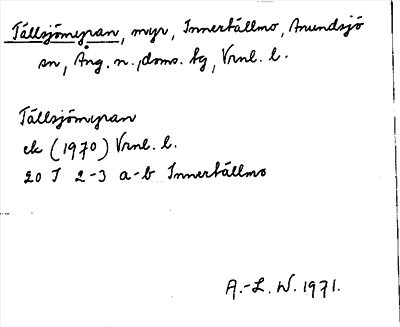 Tällsjömyran, myr, Innertällmo, Anundsjö
sn, Ång. n., doms. tg, Vrnl. l.
Tällsjömyran
ek (1970) Vrnl. l.
20 I 2-3 a-b Innertällmo
A.-L. W. 1971.